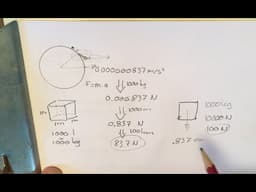 0,000000837 m/s²
F=m.a
1000kg
0.000837 N
1000
0.837 N
1000
837 N
1m
1m
1m
1000 l
1000 kg
1000 kg
10000 N
100 N
.837